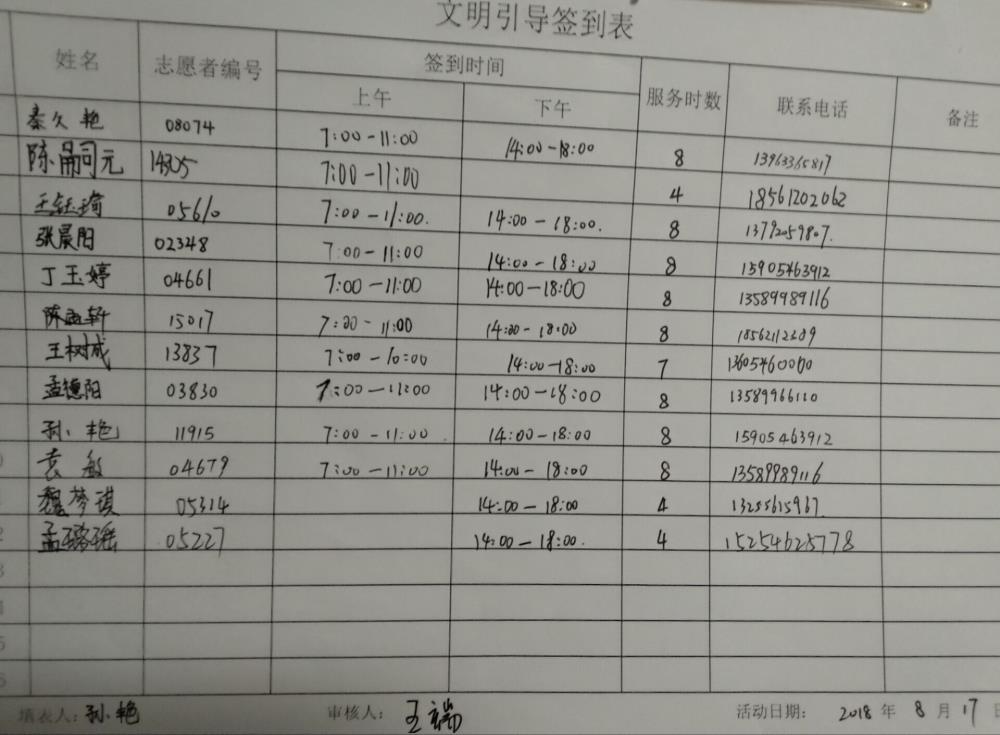 文明引导签到表
姓名 志愿者编号 签到时间 服务时数 联系电话 备注
上午 下午
秦久艳 08074 7:00-11:00 14:00-18:00 8 13963365817
陈嗣元 14305 7:00-11:00 4 18561202062
王钰琦 05610 7:00-11:00. 14:00-18:00. 8 13792059807.
张晨阳 02348 7:00-11:00 14:00-18:00 8 15905463912
丁玉婷 04661 7:00-11:00 14:00-18:00 8 13589989116
陈孟轩 15017 7:00-11:00 14:00-18:00 8 18562112309
王树成 13837 7:00-10:00 14:00-18:00 7 13605460000
孟德阳 03830 7:00-11:00 14:00-18:00 8 13589966110
孙艳 11915 7:00-11:00 14:00-18:00 8 15905463912
袁敏 04679 7:00-11:00 14:00-18:00 8 13589989116
魏梦琪 05314 14:00-18:00 4 13255615967.
孟璐瑶 05227 14:00-18:00. 4 15254625778
填表人:孙艳 审核人:王端 活动日期: 2018 年 8 月 17 日